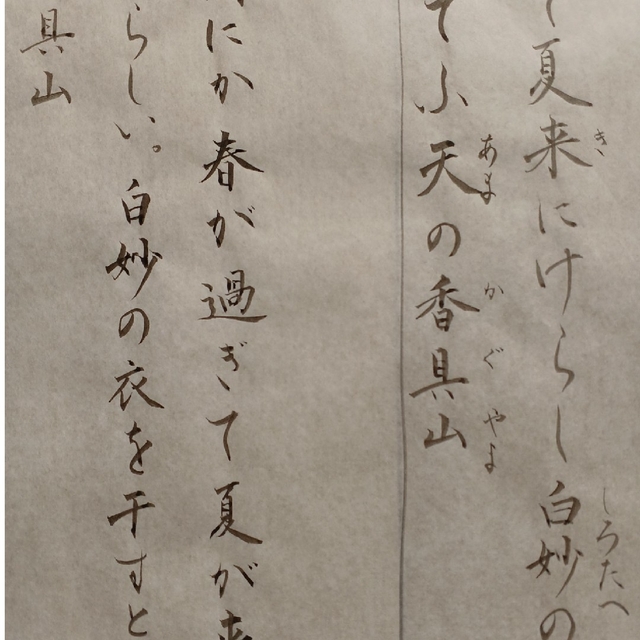 き しろたへ
て夏来にけらし白妙の
あま かぐやま
てふ天の香具山
にか春が過ぎて夏が来
らしい。白妙の衣を干すと
具山